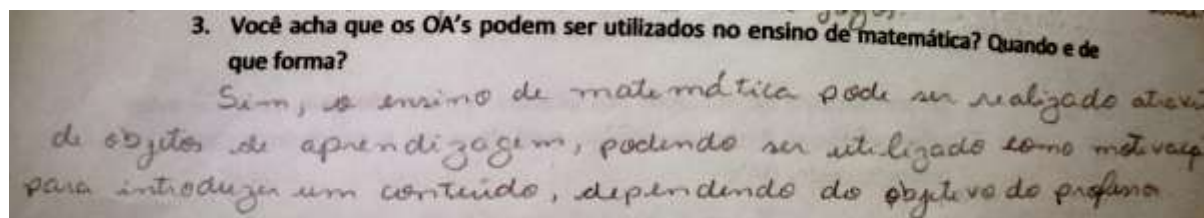 3. Você acha que os OA's podem ser utilizados no ensino de matemática? Quando e de
que forma?
Sim, o ensino de matemática pode ser realizado atrav
de objetos de aprendizagem, podendo ser utilizado como motivaç
para introduzir um conteúdo, dependendo do objetivo do professor